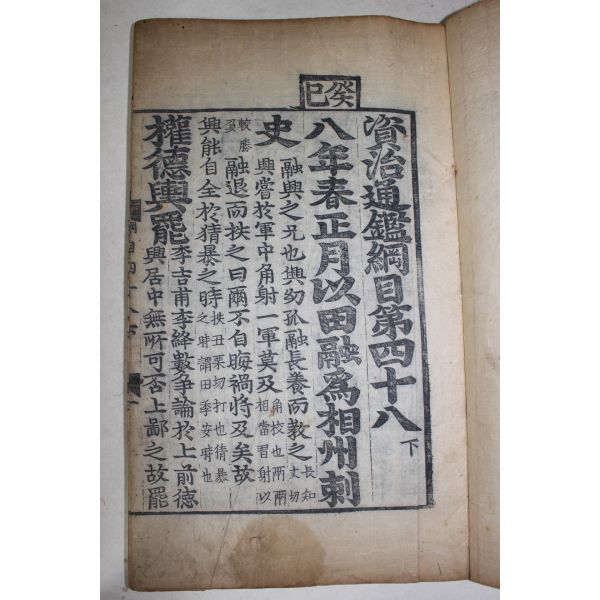 癸巳
資治通鑑綱目第四十八 下
八年春正月以田融爲相州刺
史 融興之兄也興幼孤融長養而教之 長知丈切
興嘗於軍中角射一軍莫及 角校也兩兩相當習射以
較勝負 融退而抶之曰爾不自晦禍將及矣故
興能自全於猜暴之時 抶丑栗切打也猜暴之時謂田季安時也
權德輿罷 李吉甫李絳數爭論於上前德
輿居中無所可否上鄙之故罷